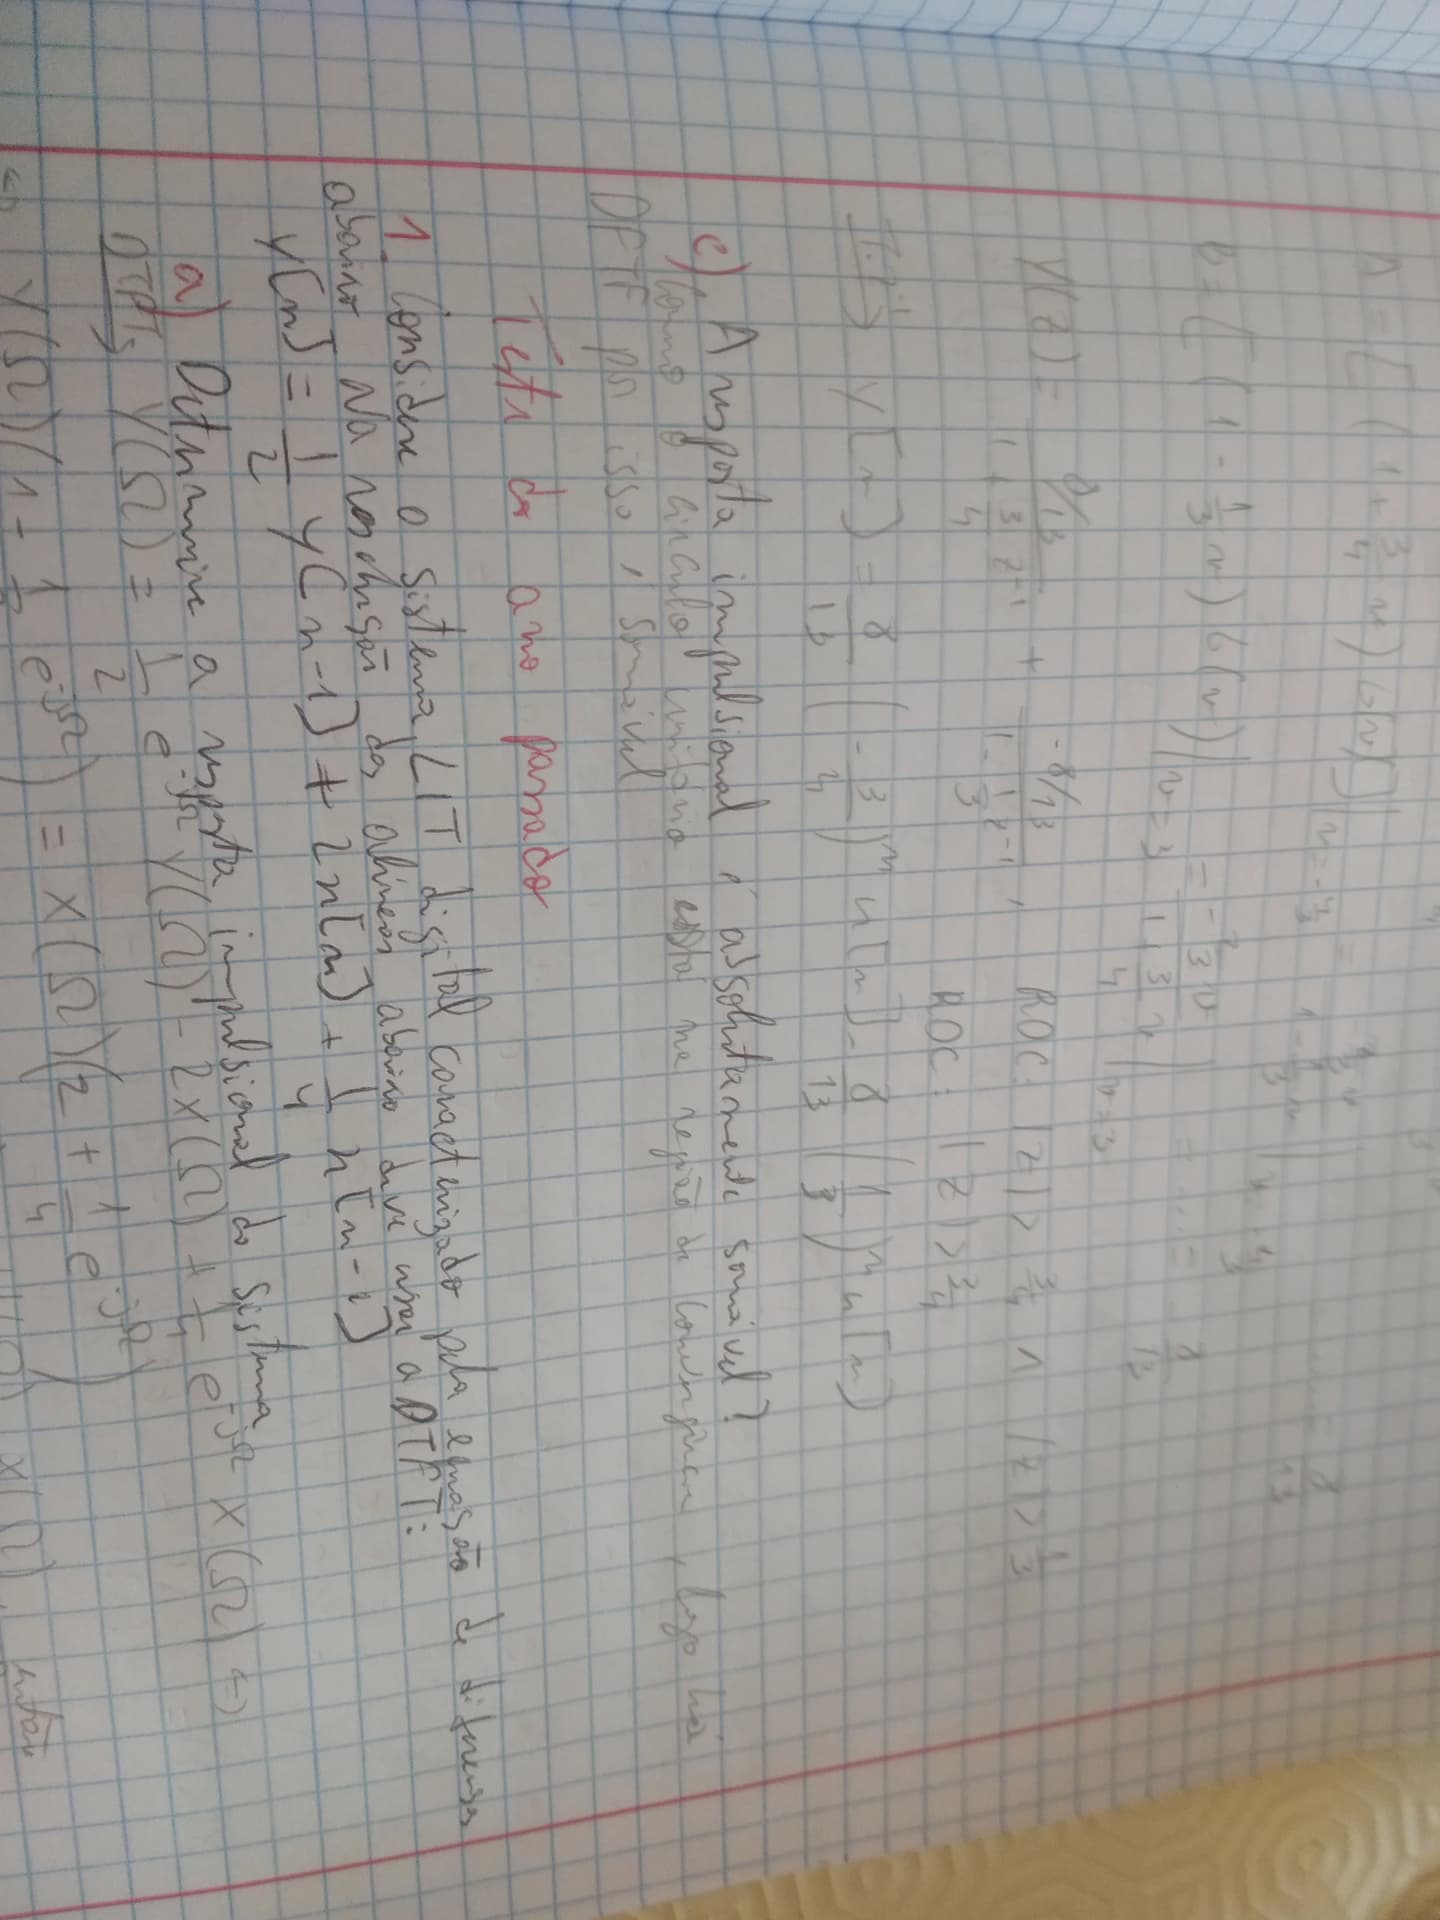 A = [(1 + 3/4 v) G(v)]|v=-4/3 = ... = 8/13
B = [(1 - 1/3 v) G(v)]|v=3 = ... = -8/13
Y(z) = (8/13)/(1 + 3/4 z^-1) + (-8/13)/(1 - 1/3 z^-1), ROC: |z| > 3/4 ∧ |z| > 1/3
ROC: |z| > 3/4
y[n] = 8/13 (-3/4)^n u[n] - 8/13 (1/3)^n u[n]
c) A resposta impulsional é absolutamente somável?
Como o círculo unitário está na região de convergência, logo há
DFTF por isso, é somável
Teste do ano passado
1. Considere o sistema LIT digital caracterizado pela equação de diferenças
abaixo Na resolução das alíneas abaixo deve usar a DTFT:
y[n] = 1/2 y[n-1] + 2x[n] + 1/4 x[n-1]
a) Determine a resposta impulsional do sistema
DTFT> Y(Ω) = 1/2 e^-jΩ Y(Ω) - 2X(Ω) + 1/4 e^-jΩ X(Ω) ⇔
⇔ Y(Ω)(1 - 1/2 e^-jΩ) = X(Ω)(2 + 1/4 e^-jΩ)
X(Ω), então